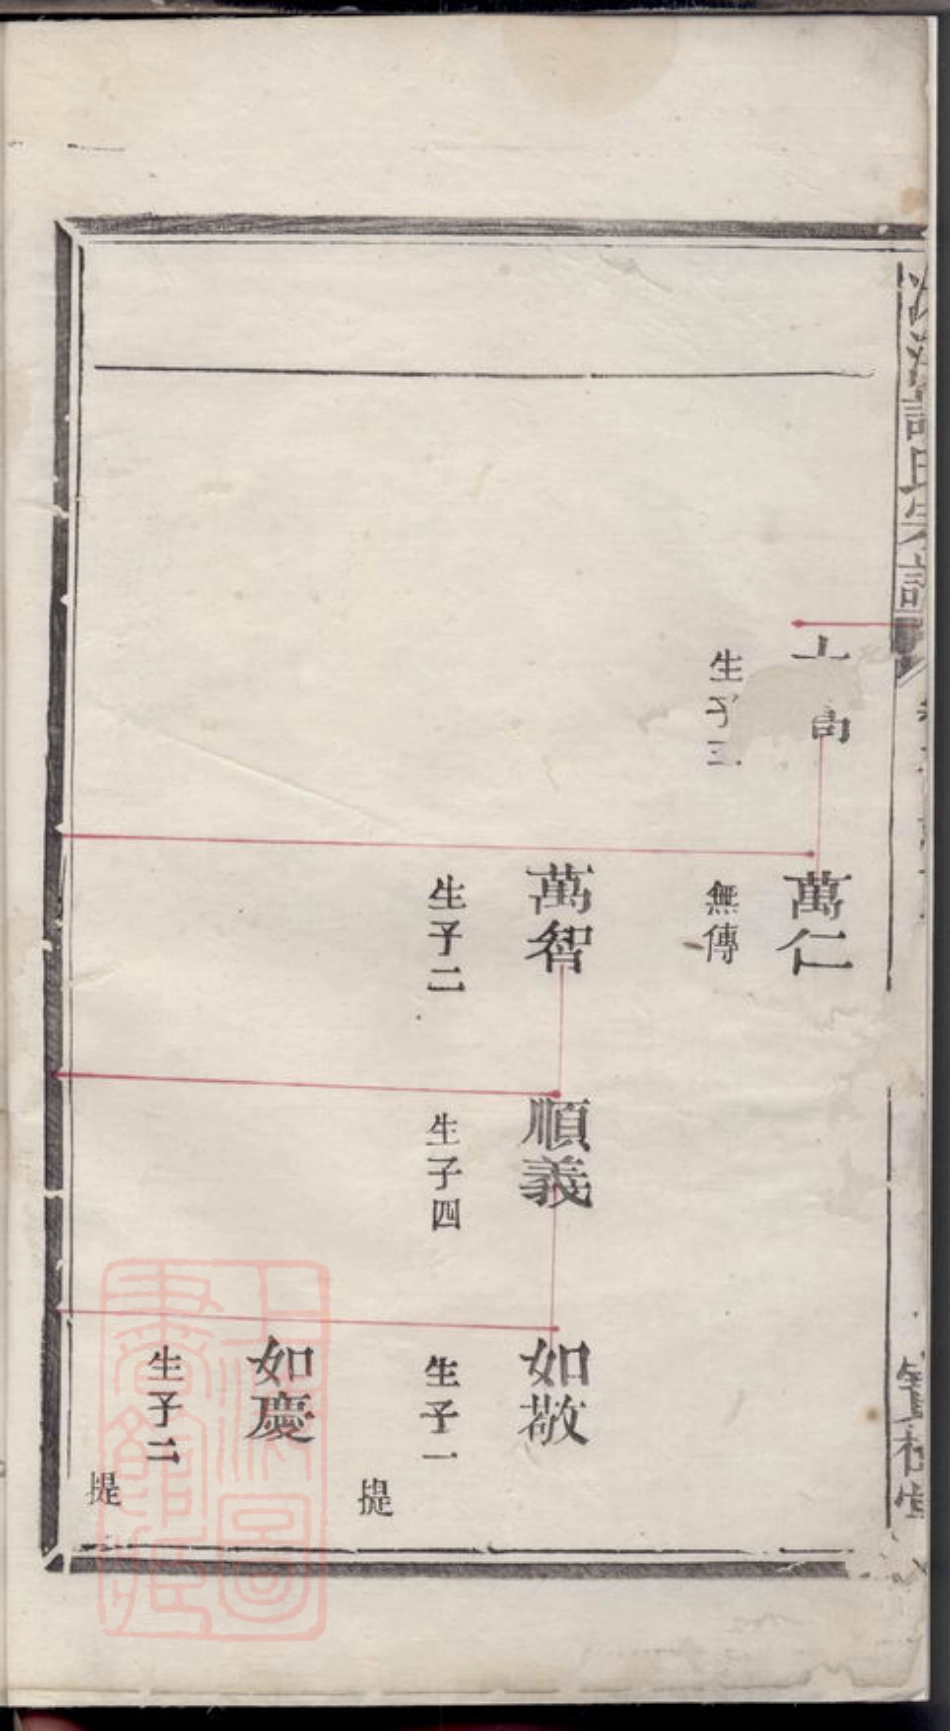 生子三
萬仁
無傳
萬智
生子二
順義
生子四
如敬
生子一
提
如慶
生子二
提
上海圖
書館藏